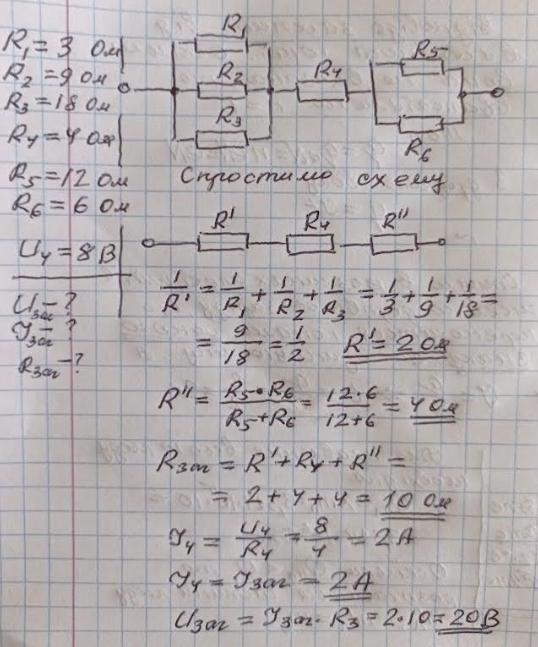 R₁ = 3 Ом
R₂ = 9 Ом
R₃ = 18 Ом
R₄ = 4 Ом
R₅ = 12 Ом
R₆ = 6 Ом
U₄ = 8 В
Uзаг - ?
Iзаг - ?
Rзаг - ?
R₁
R₂
R₃
R₄
R₅
R₆
Спростимо схему
R' R₄ R''
1/R' = 1/R₁ + 1/R₂ + 1/R₃ = 1/3 + 1/9 + 1/18 =
= 9/18 = 1/2 R' = 2 Ом
R'' = R₅·R₆/R₅+R₆ = 12·6/12+6 = 4 Ом
Rзаг = R' + R₄ + R'' =
= 2 + 4 + 4 = 10 Ом
I₄ = U₄/R₄ = 8/4 = 2 А
I₄ = Iзаг = 2 А
Uзаг = Iзаг · R₃ = 2·10 = 20 В